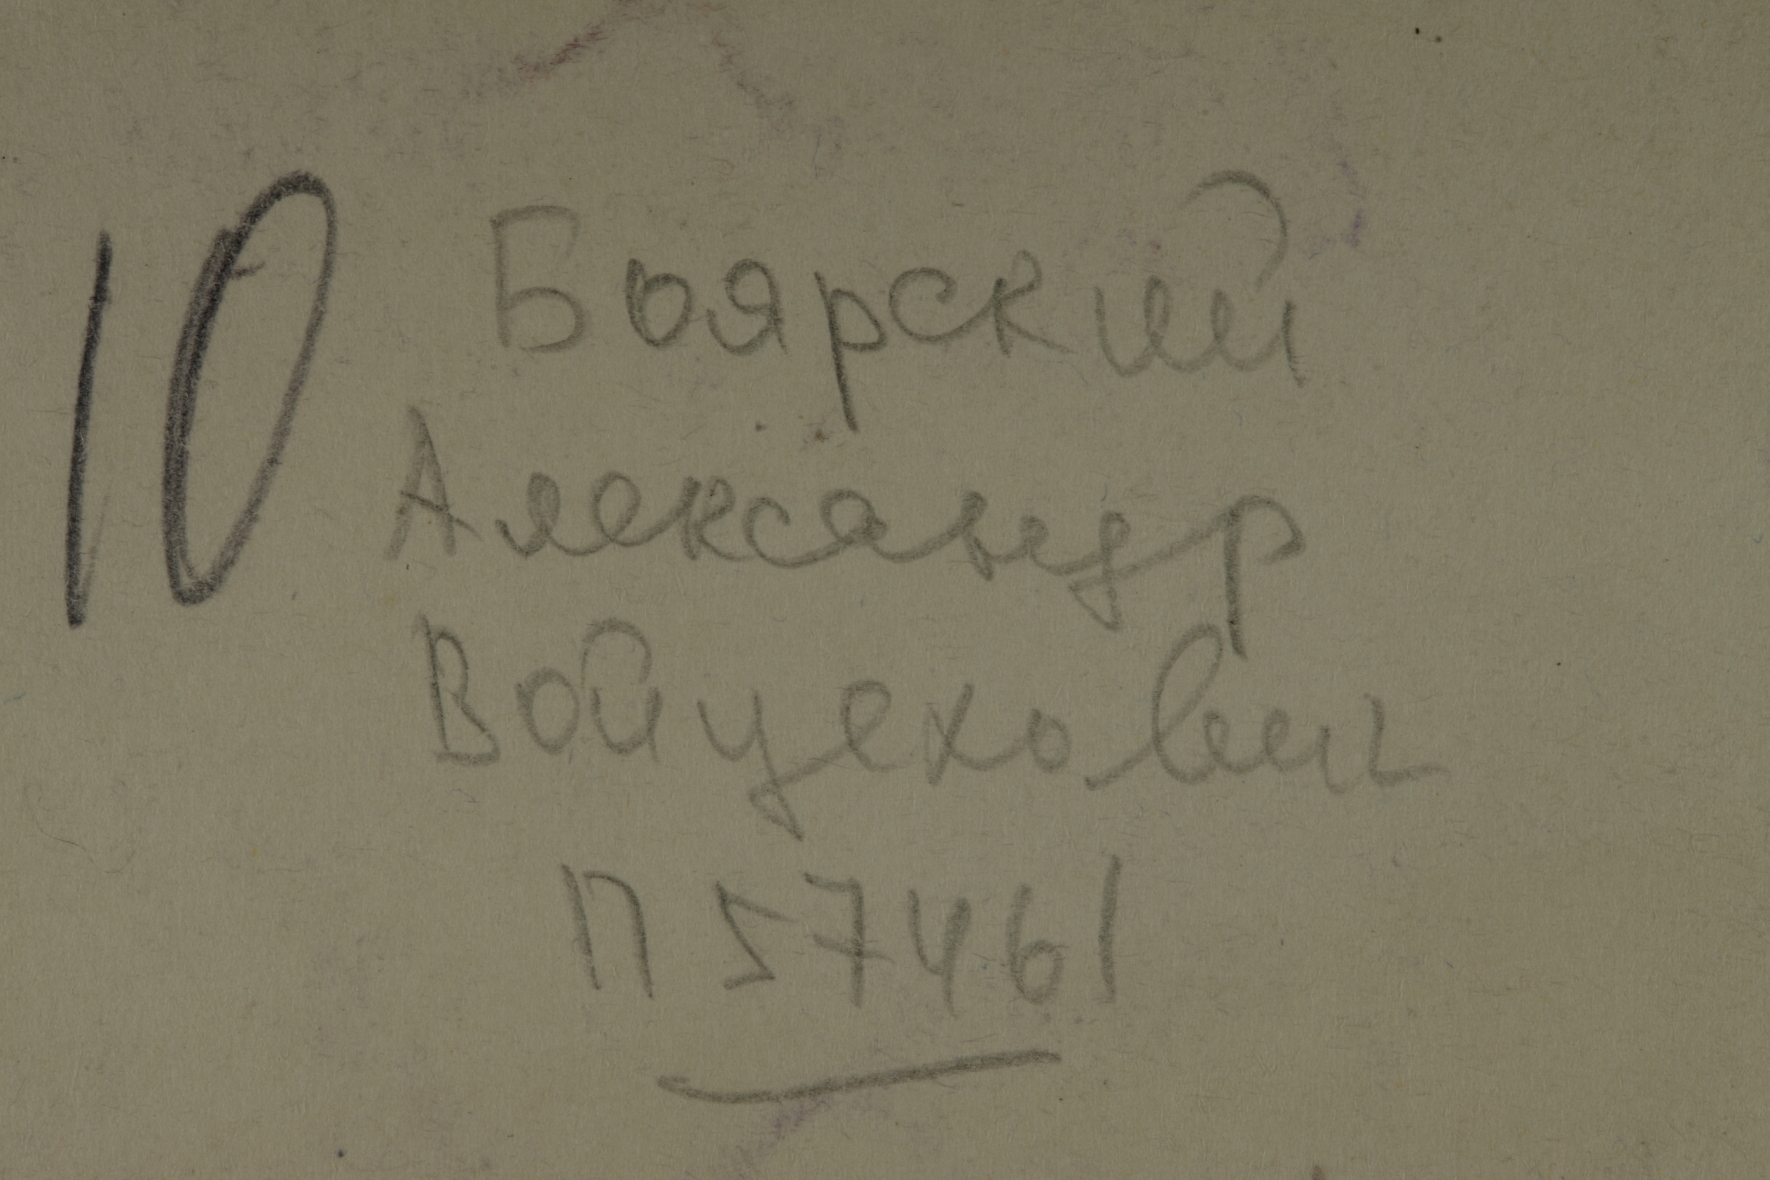 10
Боярский
Александр
Войцехович
П 57461